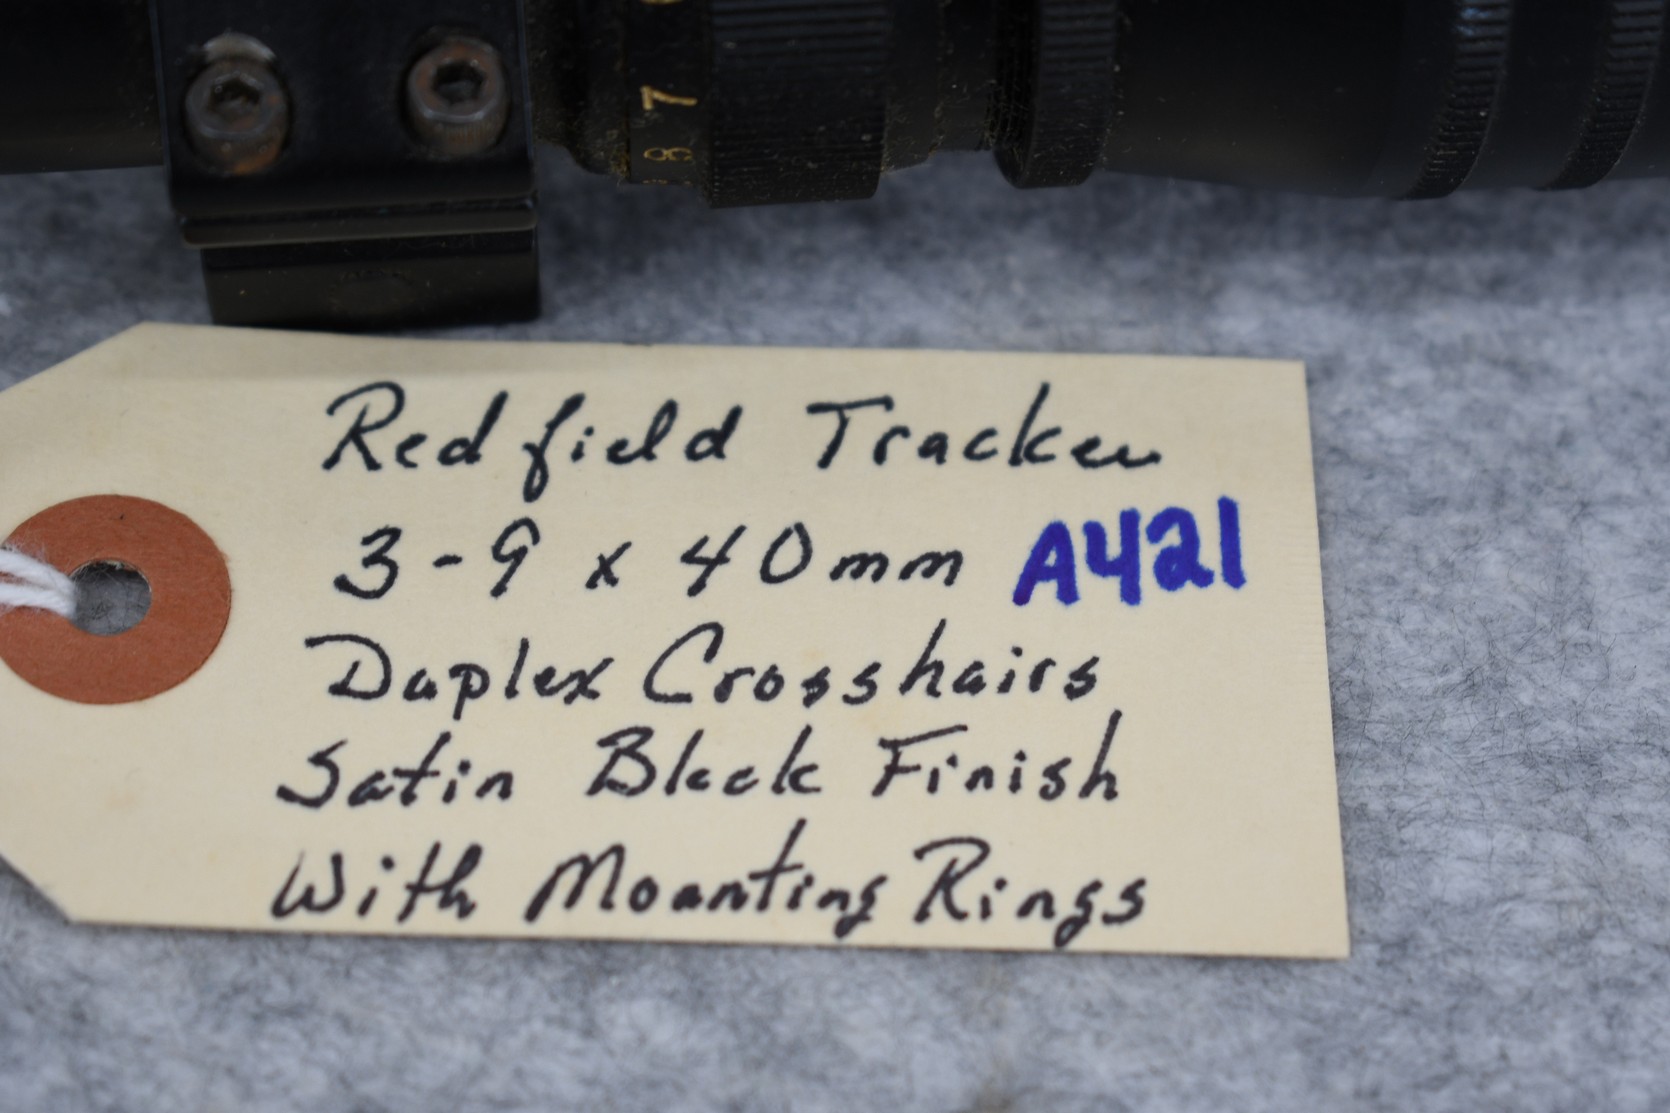 7
8
Redfield Tracker
3-9 x 40mm A421
Duplex Crosshairs
Satin Black Finish
With Mounting Rings